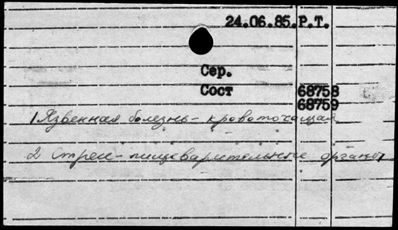 24.06.85.Р.Т.
Сер.
Сост 68758
68759
1 Язвенная болезнь - кровоточащая
2 Стресс - пищеварительные органы